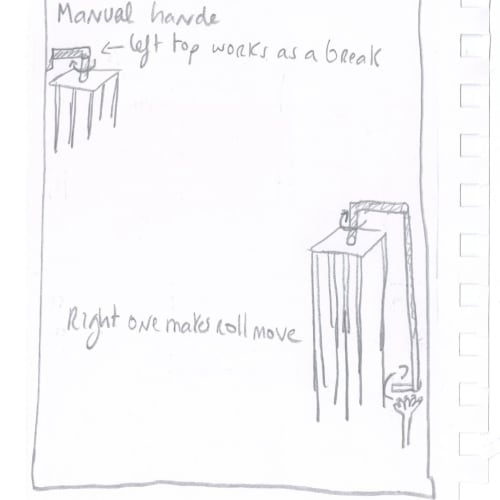 Manual hande
left top works as a break
Right one makes roll move